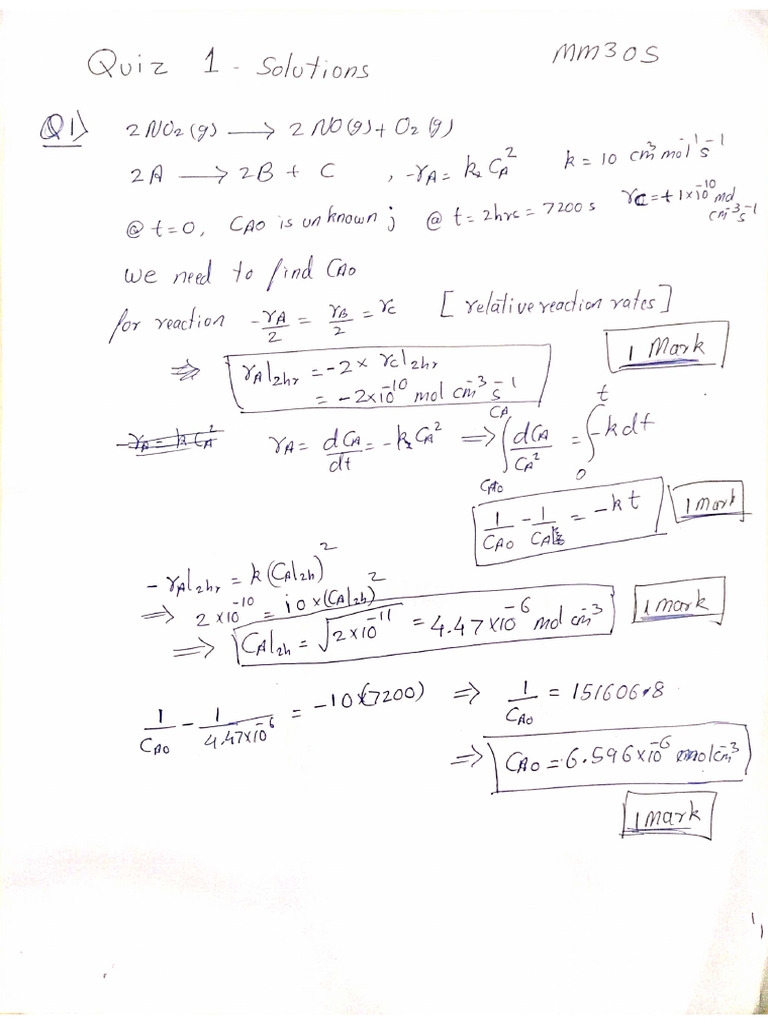 Quiz 1 - Solutions
MM305
Q1) 2NO2(g) ⟶ 2NO(g) + O2(g)
2A ⟶ 2B + C , -rA = k CA^2 k = 10 cm^3 mol^-1 s^-1
@ t=0, CAO is unknown ; @ t = 2hrs = 7200 s rC = +1×10^-10 mol cm^-3 s^-1
we need to find CAO
for reaction -rA/2 = rB/2 = rC [relative reaction rates]
1 Mark
⇒ rA|2hr = -2 × rC|2hr
= -2×10^-10 mol cm^-3 s^-1
-rA = k CA^2 rA = dCA/dt = -k CA^2 ⇒ ∫_CAO^CA dCA/CA^2 = ∫_0^t -k dt
1/CAO - 1/CA = -kt 1 mark
-rA|2hr = k (CA|2h)^2
⇒ 2×10^-10 = 10×(CA|2h)^2
⇒ CA|2h = √(2×10^-11) = 4.47×10^-6 mol cm^-3 1 mark
1/CAO - 1/4.47×10^-6 = -10×(7200) ⇒ 1/CAO = 151606.8
⇒ CAO = 6.596×10^-6 mol cm^-3
1 mark